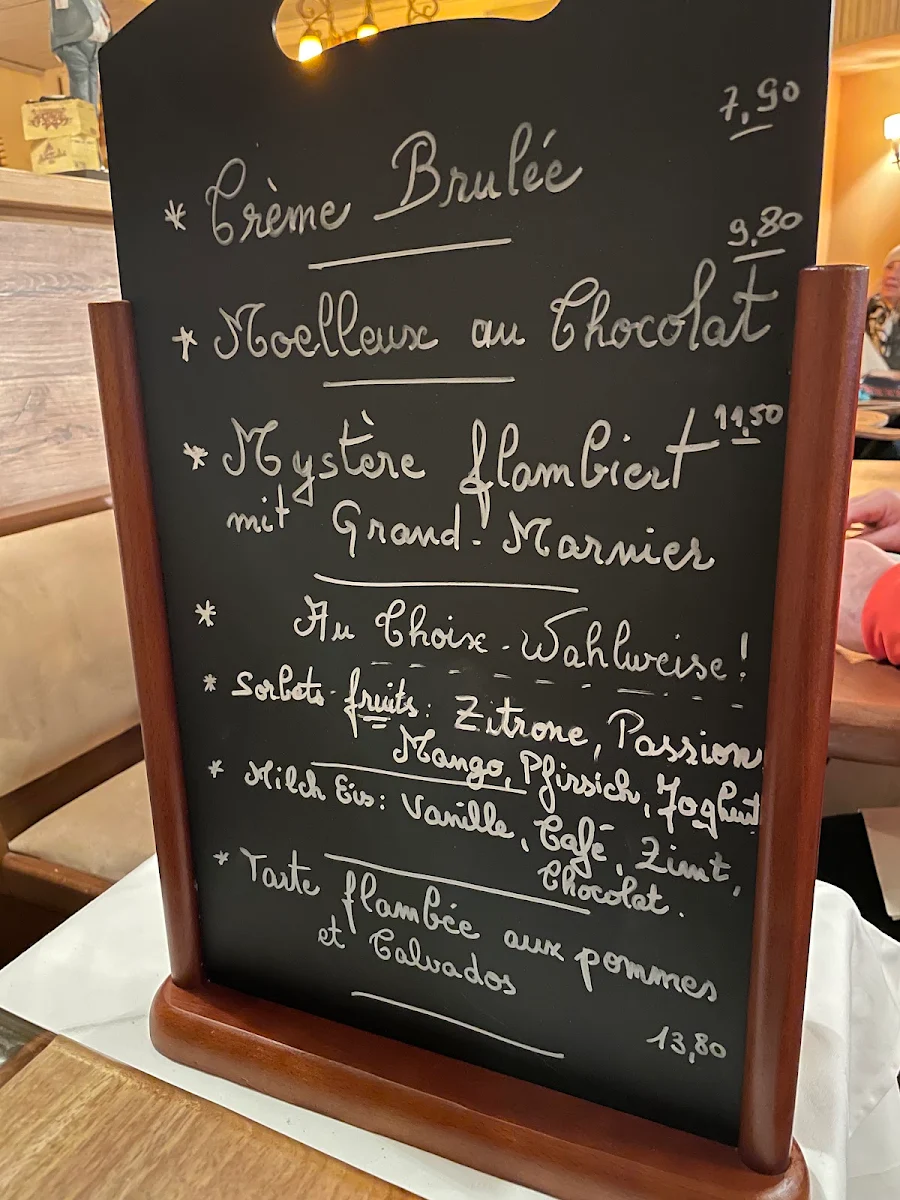 7,90
* Crème Brulée
9,80
* Moelleux au Chocolat
11,50
* Mystère flambiert
mit Grand-Marnier
* Au Choix - Wahlweise!
* Sorbets fruits: Zitrone, Passion
Mango, Pfirsich, Joghurt
* Milch Eis: Vanille, Café, Zimt,
Chocolat.
* Tarte flambée aux pommes
et Calvados
13,80